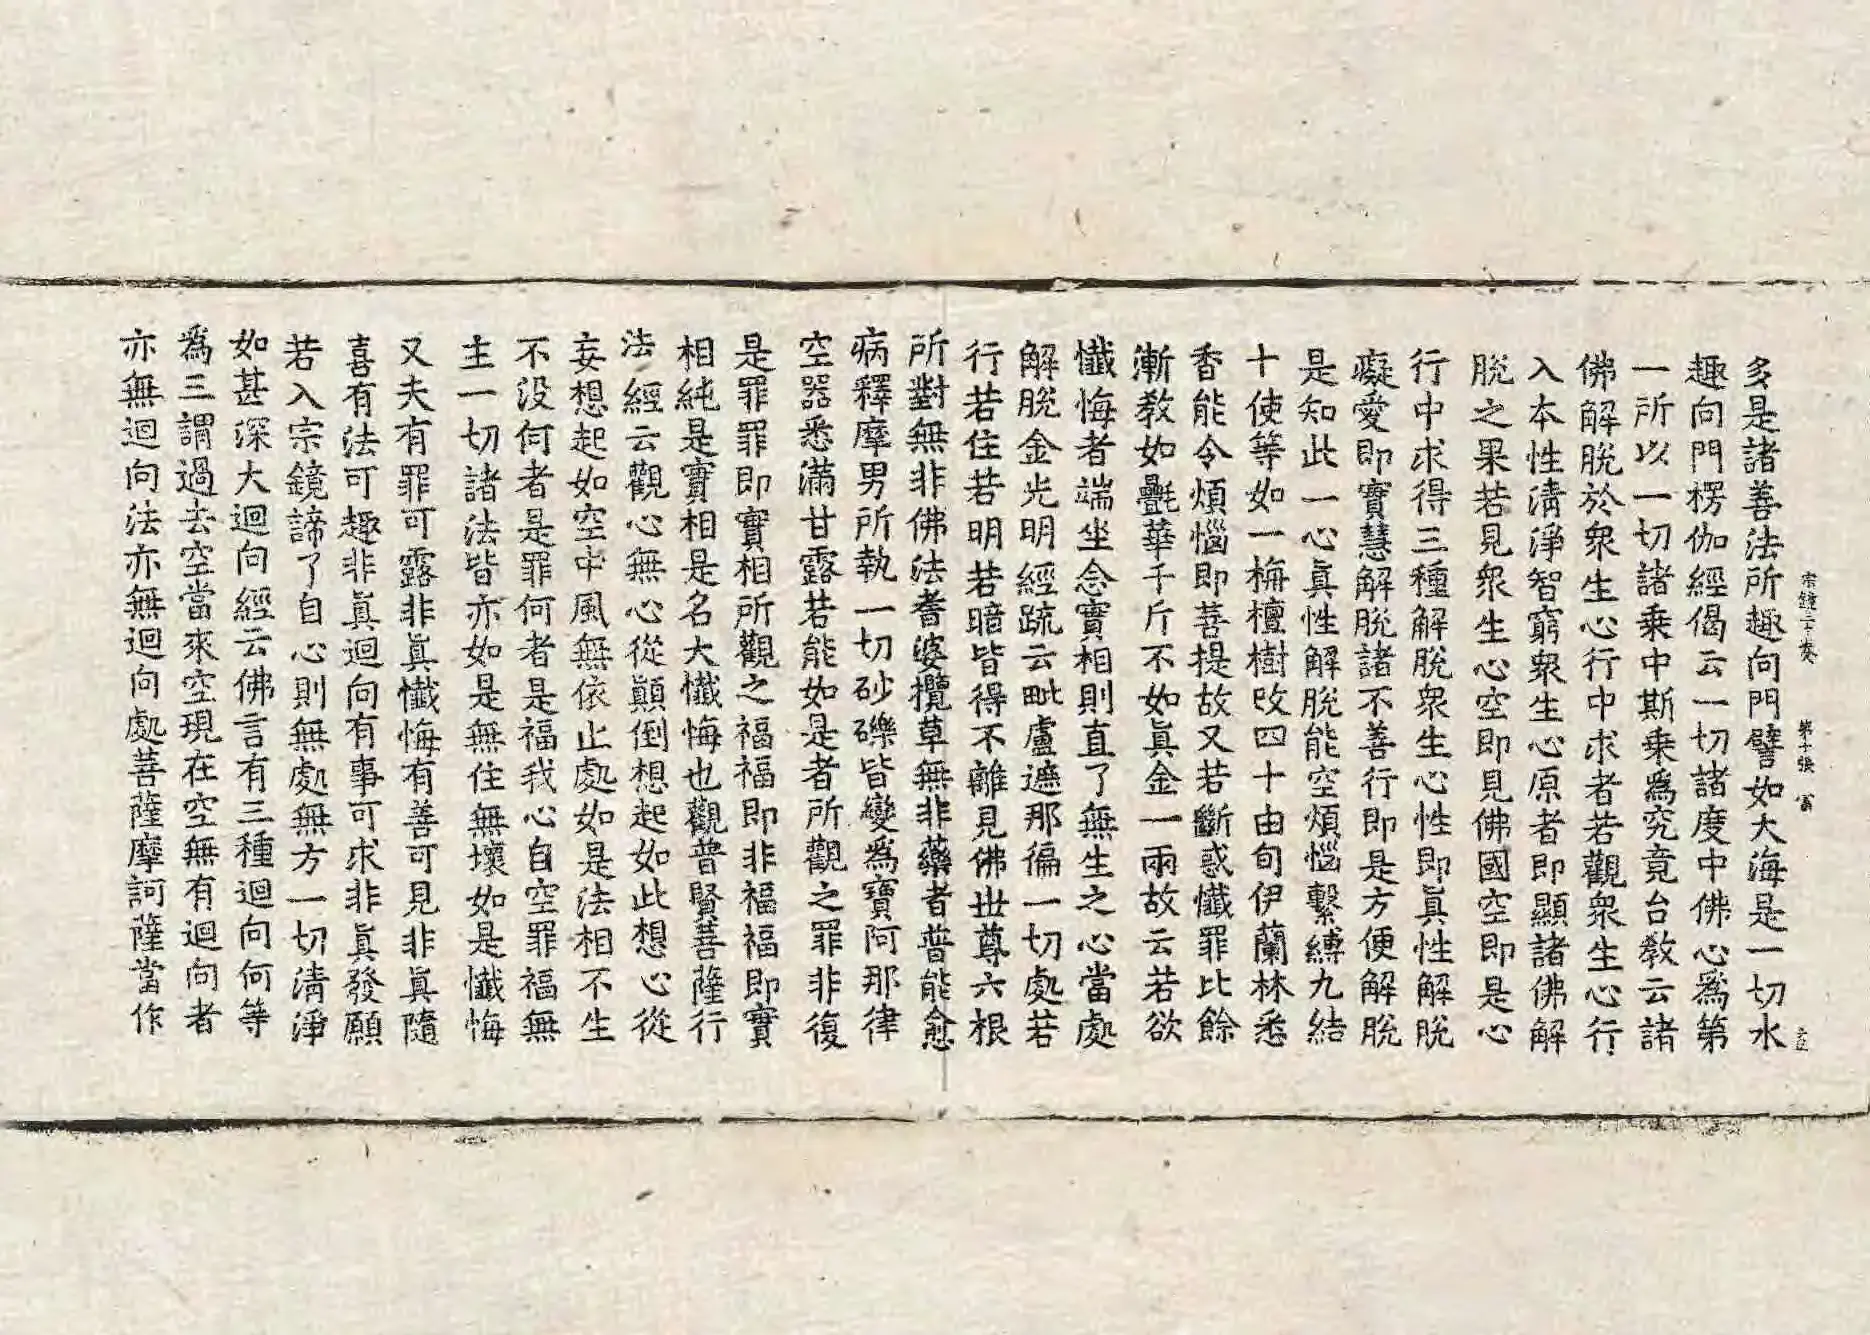 宗鏡三十 第十張 富
多是諸善法所趣向門譬如大海是一切水
趣向門楞伽經偈云一切諸度中佛心爲第
一所以一切諸乘中斯乘爲究竟台教云諸
佛解脫於衆生心行中求者若觀衆生心行
入本性清淨智窮衆生心原者即顯諸佛解
脫之果若見衆生心空即見佛國空即是心
行中求得三種解脫衆生心性即眞性解脫
癡愛即實慧解脫諸不善行即是方便解脫
是知此一心眞性解脫能空煩惱繫縛九結
十使等如一栴檀樹改四十由旬伊蘭林悉
香能令煩惱即菩提故又若斷惑懺罪比餘
漸教如㲲華千斤不如眞金一兩故云若欲
懺悔者端坐念實相則直了無生之心當處
解脫金光明經疏云毗盧遮那徧一切處若
行若住若明若暗皆得不離見佛世尊六根
所對無非佛法耆婆攬草無非藥者普能愈
病釋摩男所執一切砂礫皆變爲寶阿那律
空器悉滿甘露若能如是者所觀之罪非復
是罪罪即實相所觀之福福即非福福即實
相純是實相是名大懺悔也觀普賢菩薩行
法經云觀心無心從顚倒想起如此想心從
妄想起如空中風無依止處如是法相不生
不没何者是罪何者是福我心自空罪福無
主一切諸法皆亦如是無住無壞如是懺悔
又夫有罪可露非眞懺悔有善可見非眞隨
喜有法可趣非眞迴向有事可求非眞發願
若入宗鏡諦了自心則無處無方一切清淨
如甚深大迴向經云佛言有三種迴向何等
爲三謂過去空當來空現在空無有迴向者
亦無迴向法亦無迴向處菩薩摩訶薩當作